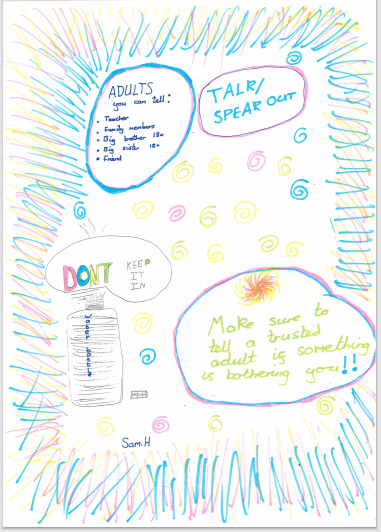 ADULTS
you can tell:
• Teacher
• Family members
• Big brother 18+
• Big sister 18+
• Friend
TALK/
SPEAR OUT
DONT KEEP
IT
IN
Make sure to
tell a trusted
adult is something
is bothering you!!
Sam.H